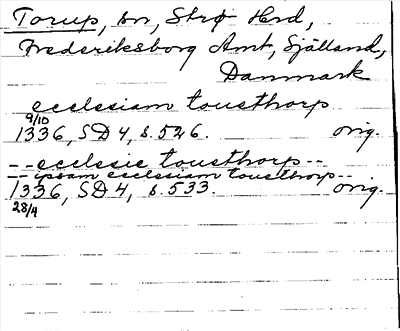 Torup, sn, Strø Hrd,
Frederiksborg Amt, Själland,
Danmark
ecclesiam tousthorp
9/10
1336, SD 4, s. 526. orig.
--ecclesie tousthorp--
--ipsam ecclesiam tousthorp--
1336, SD 4, s. 533. orig.
28/4